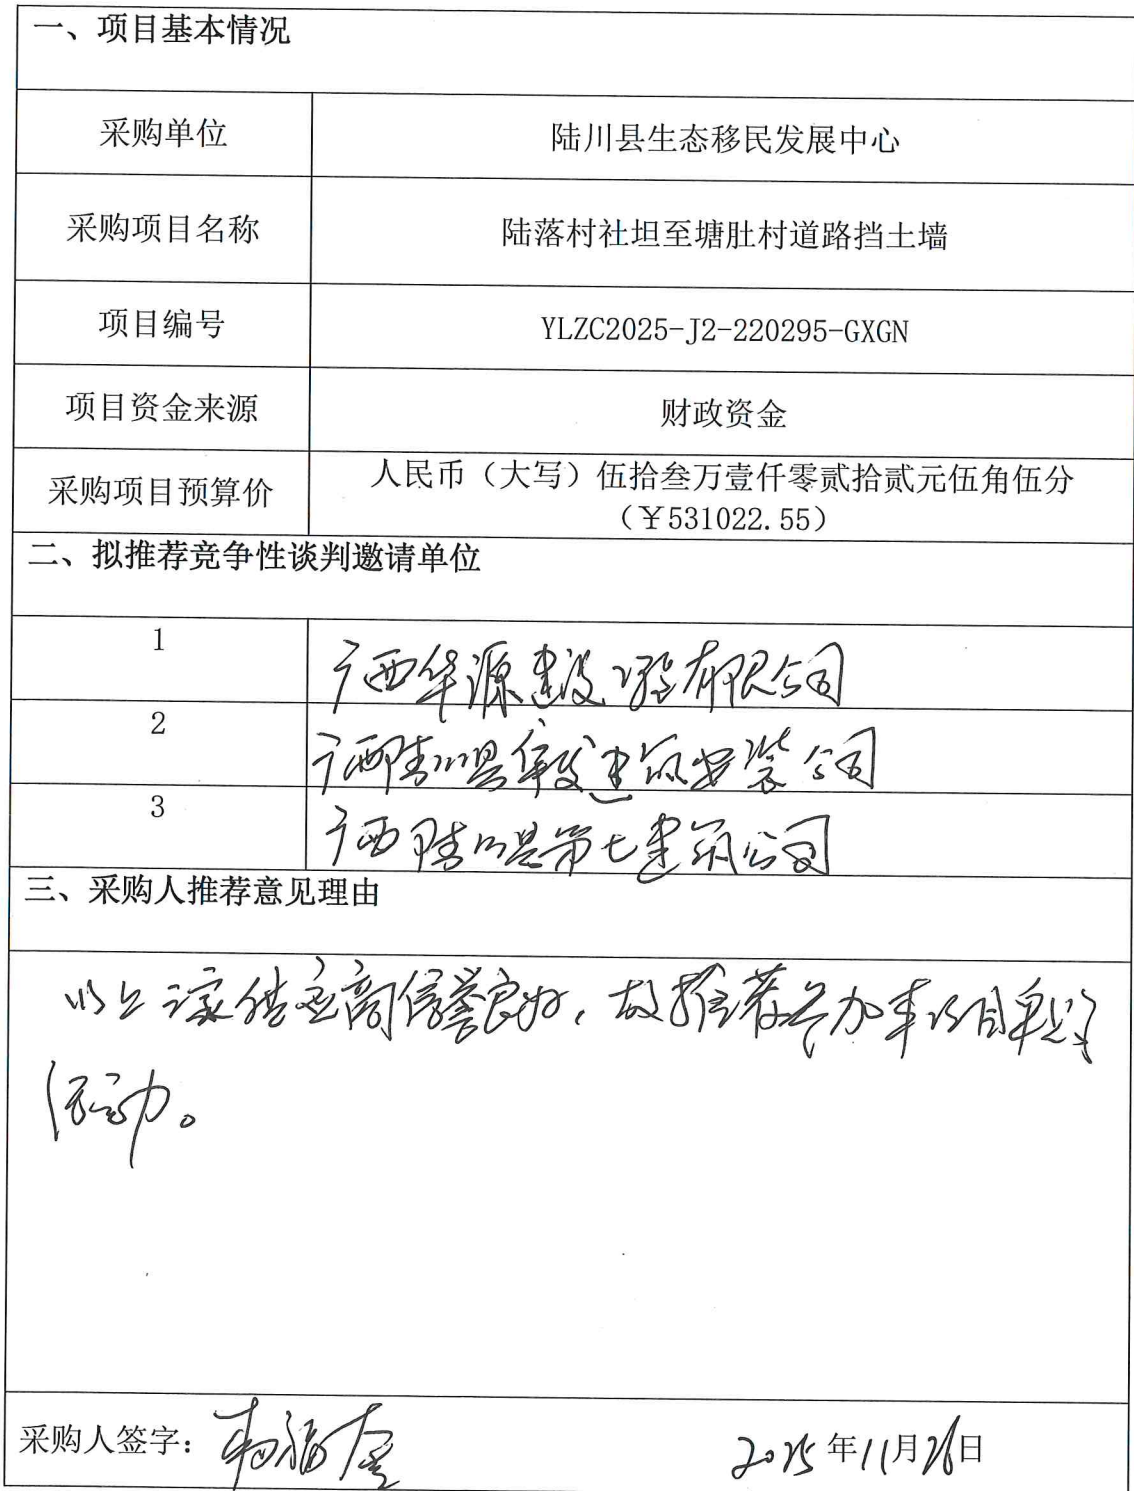 一、项目基本情况
采购单位 陆川县生态移民发展中心
采购项目名称 陆落村社坦至塘肚村道路挡土墙
项目编号 YLZC2025-J2-220295-GXGN
项目资金来源 财政资金
采购项目预算价 人民币（大写）伍拾叁万壹仟零贰拾贰元伍角伍分
（￥531022.55）
二、拟推荐竞争性谈判邀请单位
1 广西华源建设工程有限公司
2 广西陆川县建筑安装公司
3 广西陆川县第七建筑公司
三、采购人推荐意见理由
以上家供应商信誉良好，故推荐参加本项目采购
活动。
采购人签字： 2025年11月26日